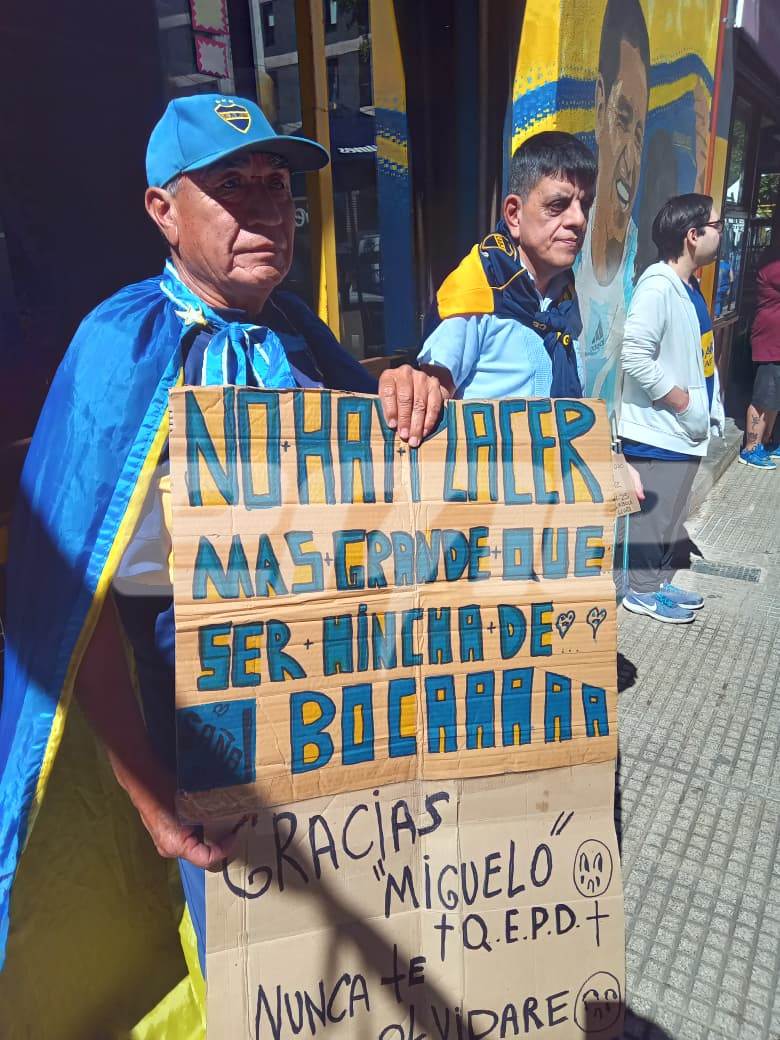 NO HAY PLACER
MAS GRANDE QUE
SER HINCHA DE ...
BOCAAAAA
GRACIAS
"MIGUELO"
Q.E.P.D.
NUNCA tE
OLVIDARE